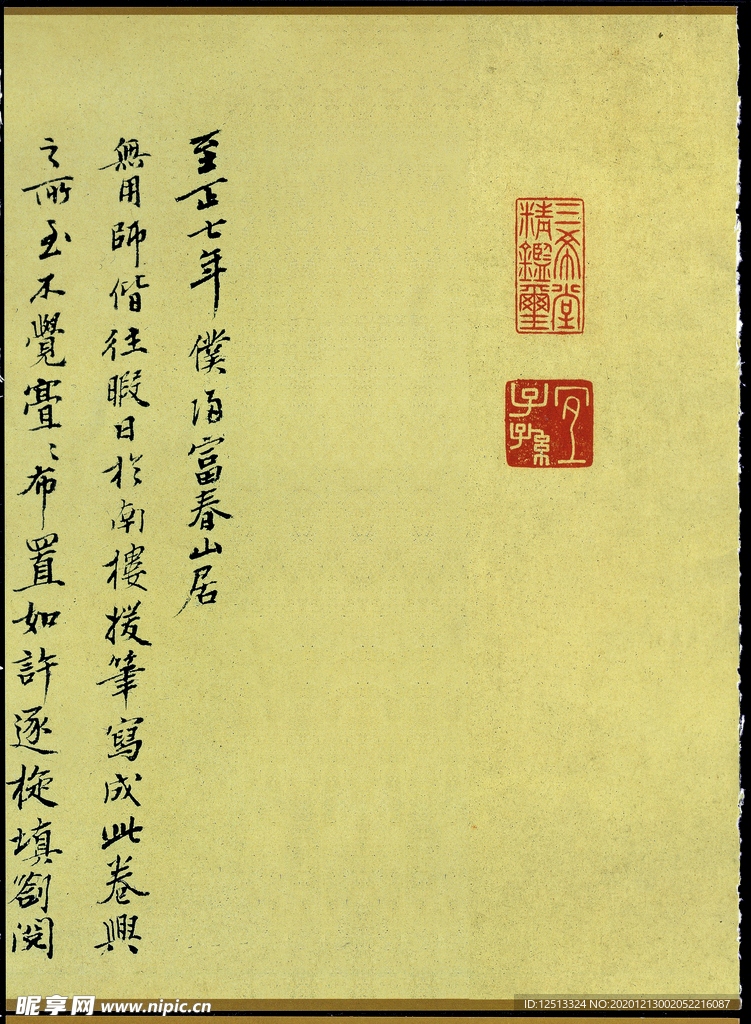 三希堂
精鑑璽
宜
子孫
至正七年僕歸富春山居
無用師偕往暇日於南樓援筆寫成此卷興
之所至不覺亹亹布置如許逐旋填劄閱
昵享网 www.nipic.cn
ID:12513324 NO:20201213002052216087